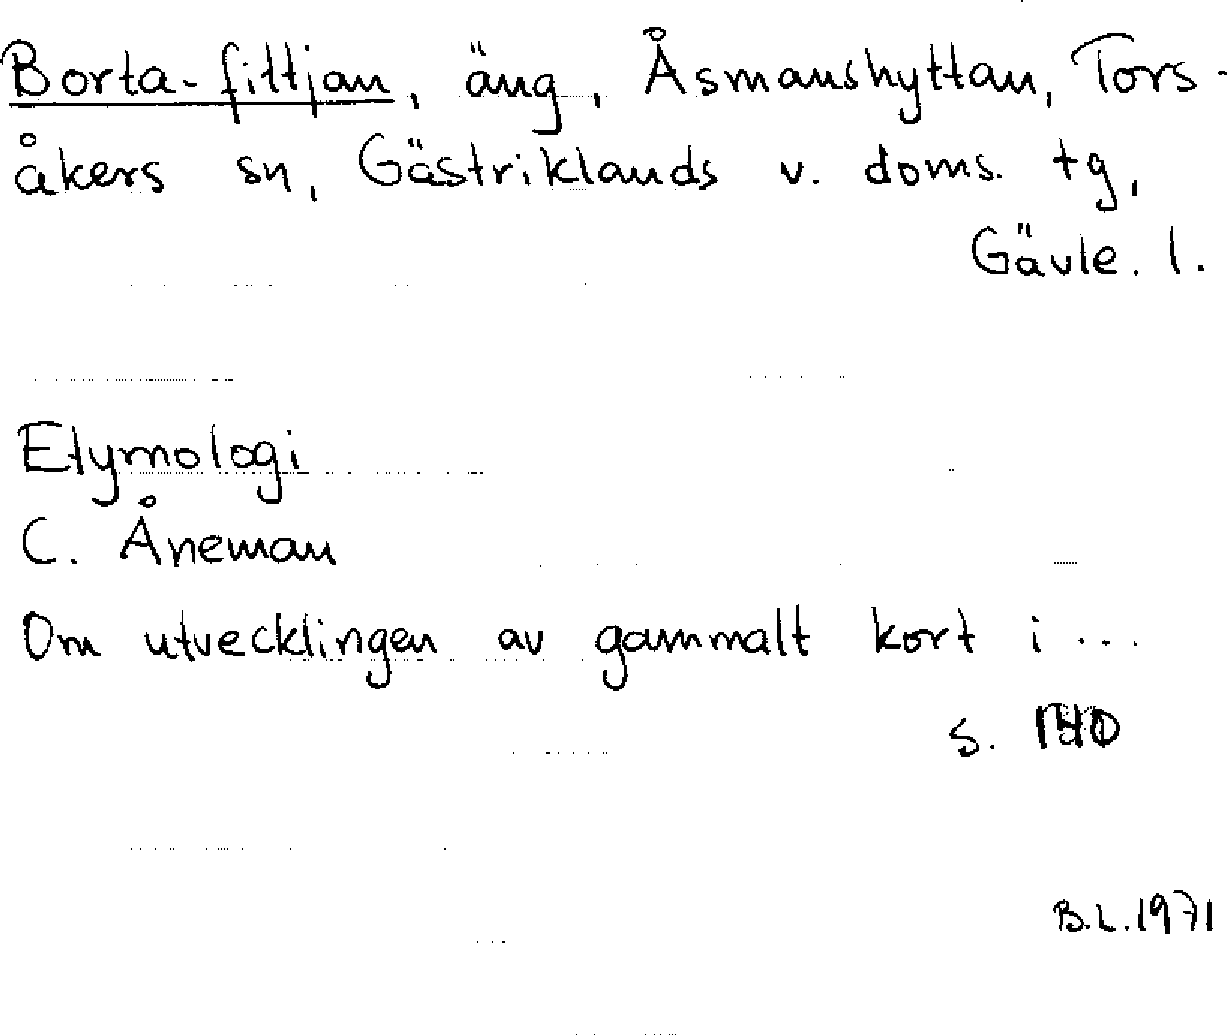 Borta-fittjan, äng, Åsmanshyttan, Tors-
åkers sn, Gästriklands v. doms. tg,
Gävle. l.
Etymologi
C. Åneman
Om utvecklingen av gammalt kort i ...
s.
B.L.1971